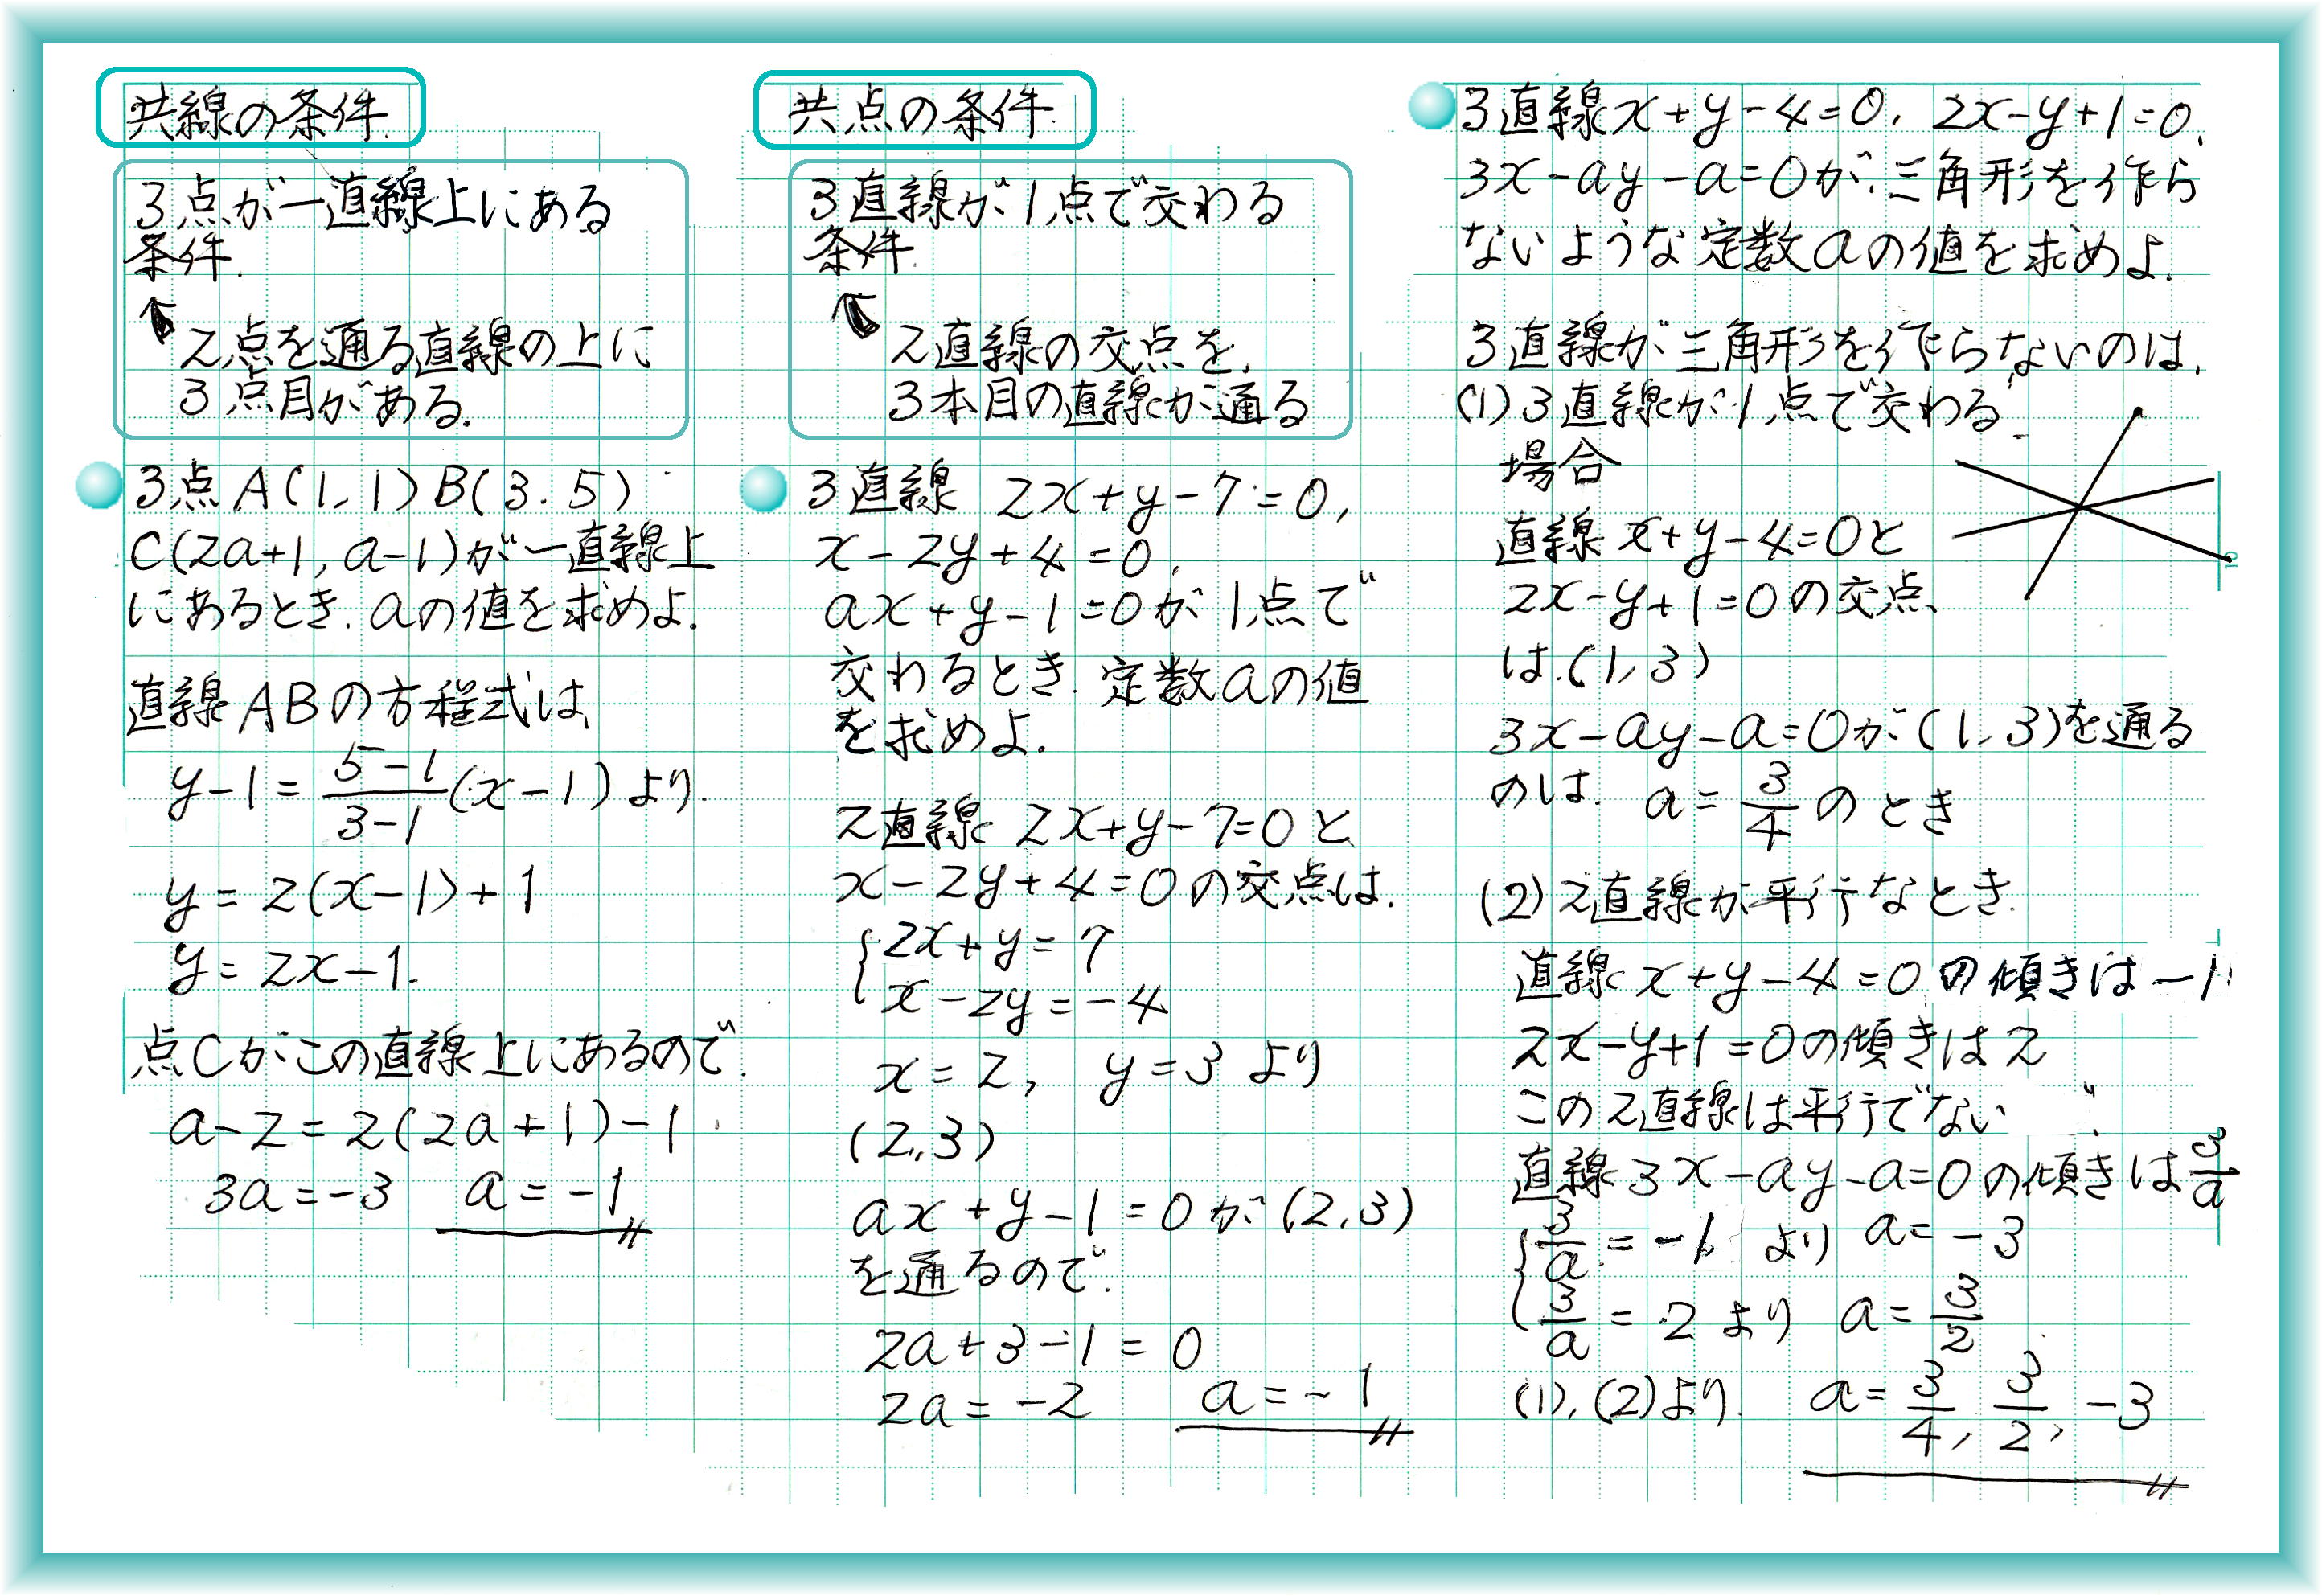 共線の条件.
3点が一直線上にある
条件.
2点を通る直線の上に
3点目がある.
3点A(1,1) B(3.5)
C(2a+1, a-1)が一直線上
にあるとき. aの値を求めよ.
直線ABの方程式は,
y-1 = \frac{5-1}{3-1}(x-1)より.
y = 2(x-1)+1
y = 2x-1.
点Cがこの直線上にあるので.
a-2 = 2(2a+1)-1
3a = -3 a = -1
共点の条件.
3直線が1点で交わる
条件.
2直線の交点を,
3本目の直線が通る
3直線 2x+y-7=0,
x-2y+4=0,
ax+y-1=0が1点で
交わるとき. 定数aの値
を求めよ.
2直線 2x+y-7=0と
x-2y+4=0の交点は.
2x+y=7
x-2y=-4
x=2, y=3より
(2,3)
ax+y-1=0が(2,3)
を通るので.
2a+3-1=0
2a=-2 a=-1
3直線x+y-4=0, 2x-y+1=0,
3x-ay-a=0が,三角形を作ら
ないような定数aの値を求めよ.
3直線が三角形を作らないのは,
(1)3直線が1点で交わる
場合
直線x+y-4=0と
2x-y+1=0の交点
は.(1,3)
3x-ay-a=0が(1,3)を通る
のは. a=\frac{3}{4}のとき
(2)2直線が平行なとき.
直線x+y-4=0の傾きは-1
2x-y+1=0の傾きは2
この2直線は平行でない
直線3x-ay-a=0の傾きは\frac{3}{a}
\frac{3}{a}=-1 より a=-3
\frac{3}{a}=2より a=\frac{3}{2}
(1),(2)より. a=\frac{3}{4}, \frac{3}{2}, -3
10